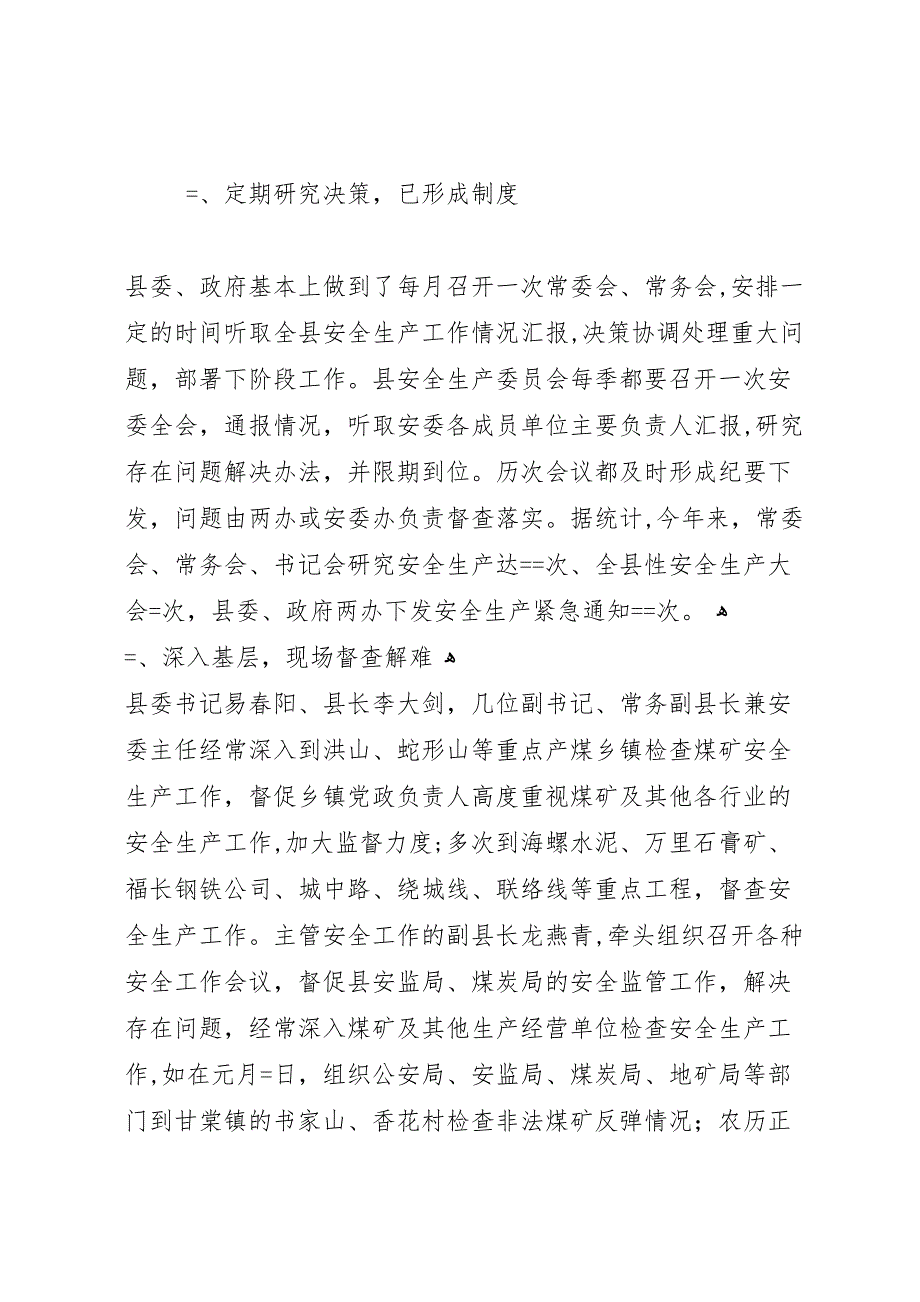 =、定期研究决策，已形成制度
县委、政府基本上做到了每月召开一次常委会、常务会,安排一
定的时间听取全县安全生产工作情况汇报,决策协调处理重大问
题，部署下阶段工作。县安全生产委员会每季都要召开一次安
委全会，通报情况，听取安委各成员单位主要负责人汇报,研究
存在问题解决办法，并限期到位。历次会议都及时形成纪要下
发，问题由两办或安委办负责督查落实。据统计,今年来，常委
会、常务会、书记会研究安全生产达==次、全县性安全生产大
会=次，县委、政府两办下发安全生产紧急通知==次。ﻫ
=、深入基层，现场督查解难ﻫ
县委书记易春阳、县长李大剑，几位副书记、常务副县长兼安
委主任经常深入到洪山、蛇形山等重点产煤乡镇检查煤矿安全
生产工作，督促乡镇党政负责人高度重视煤矿及其他各行业的
安全生产工作,加大监督力度;多次到海螺水泥、万里石膏矿、
福长钢铁公司、城中路、绕城线、联络线等重点工程，督查安
全生产工作。主管安全工作的副县长龙燕青,牵头组织召开各种
安全工作会议，督促县安监局、煤炭局的安全监管工作，解决
存在问题，经常深入煤矿及其他生产经营单位检查安全生产工
作,如在元月=日，组织公安局、安监局、煤炭局、地矿局等部
门到甘棠镇的书家山、香花村检查非法煤矿反弹情况；农历正